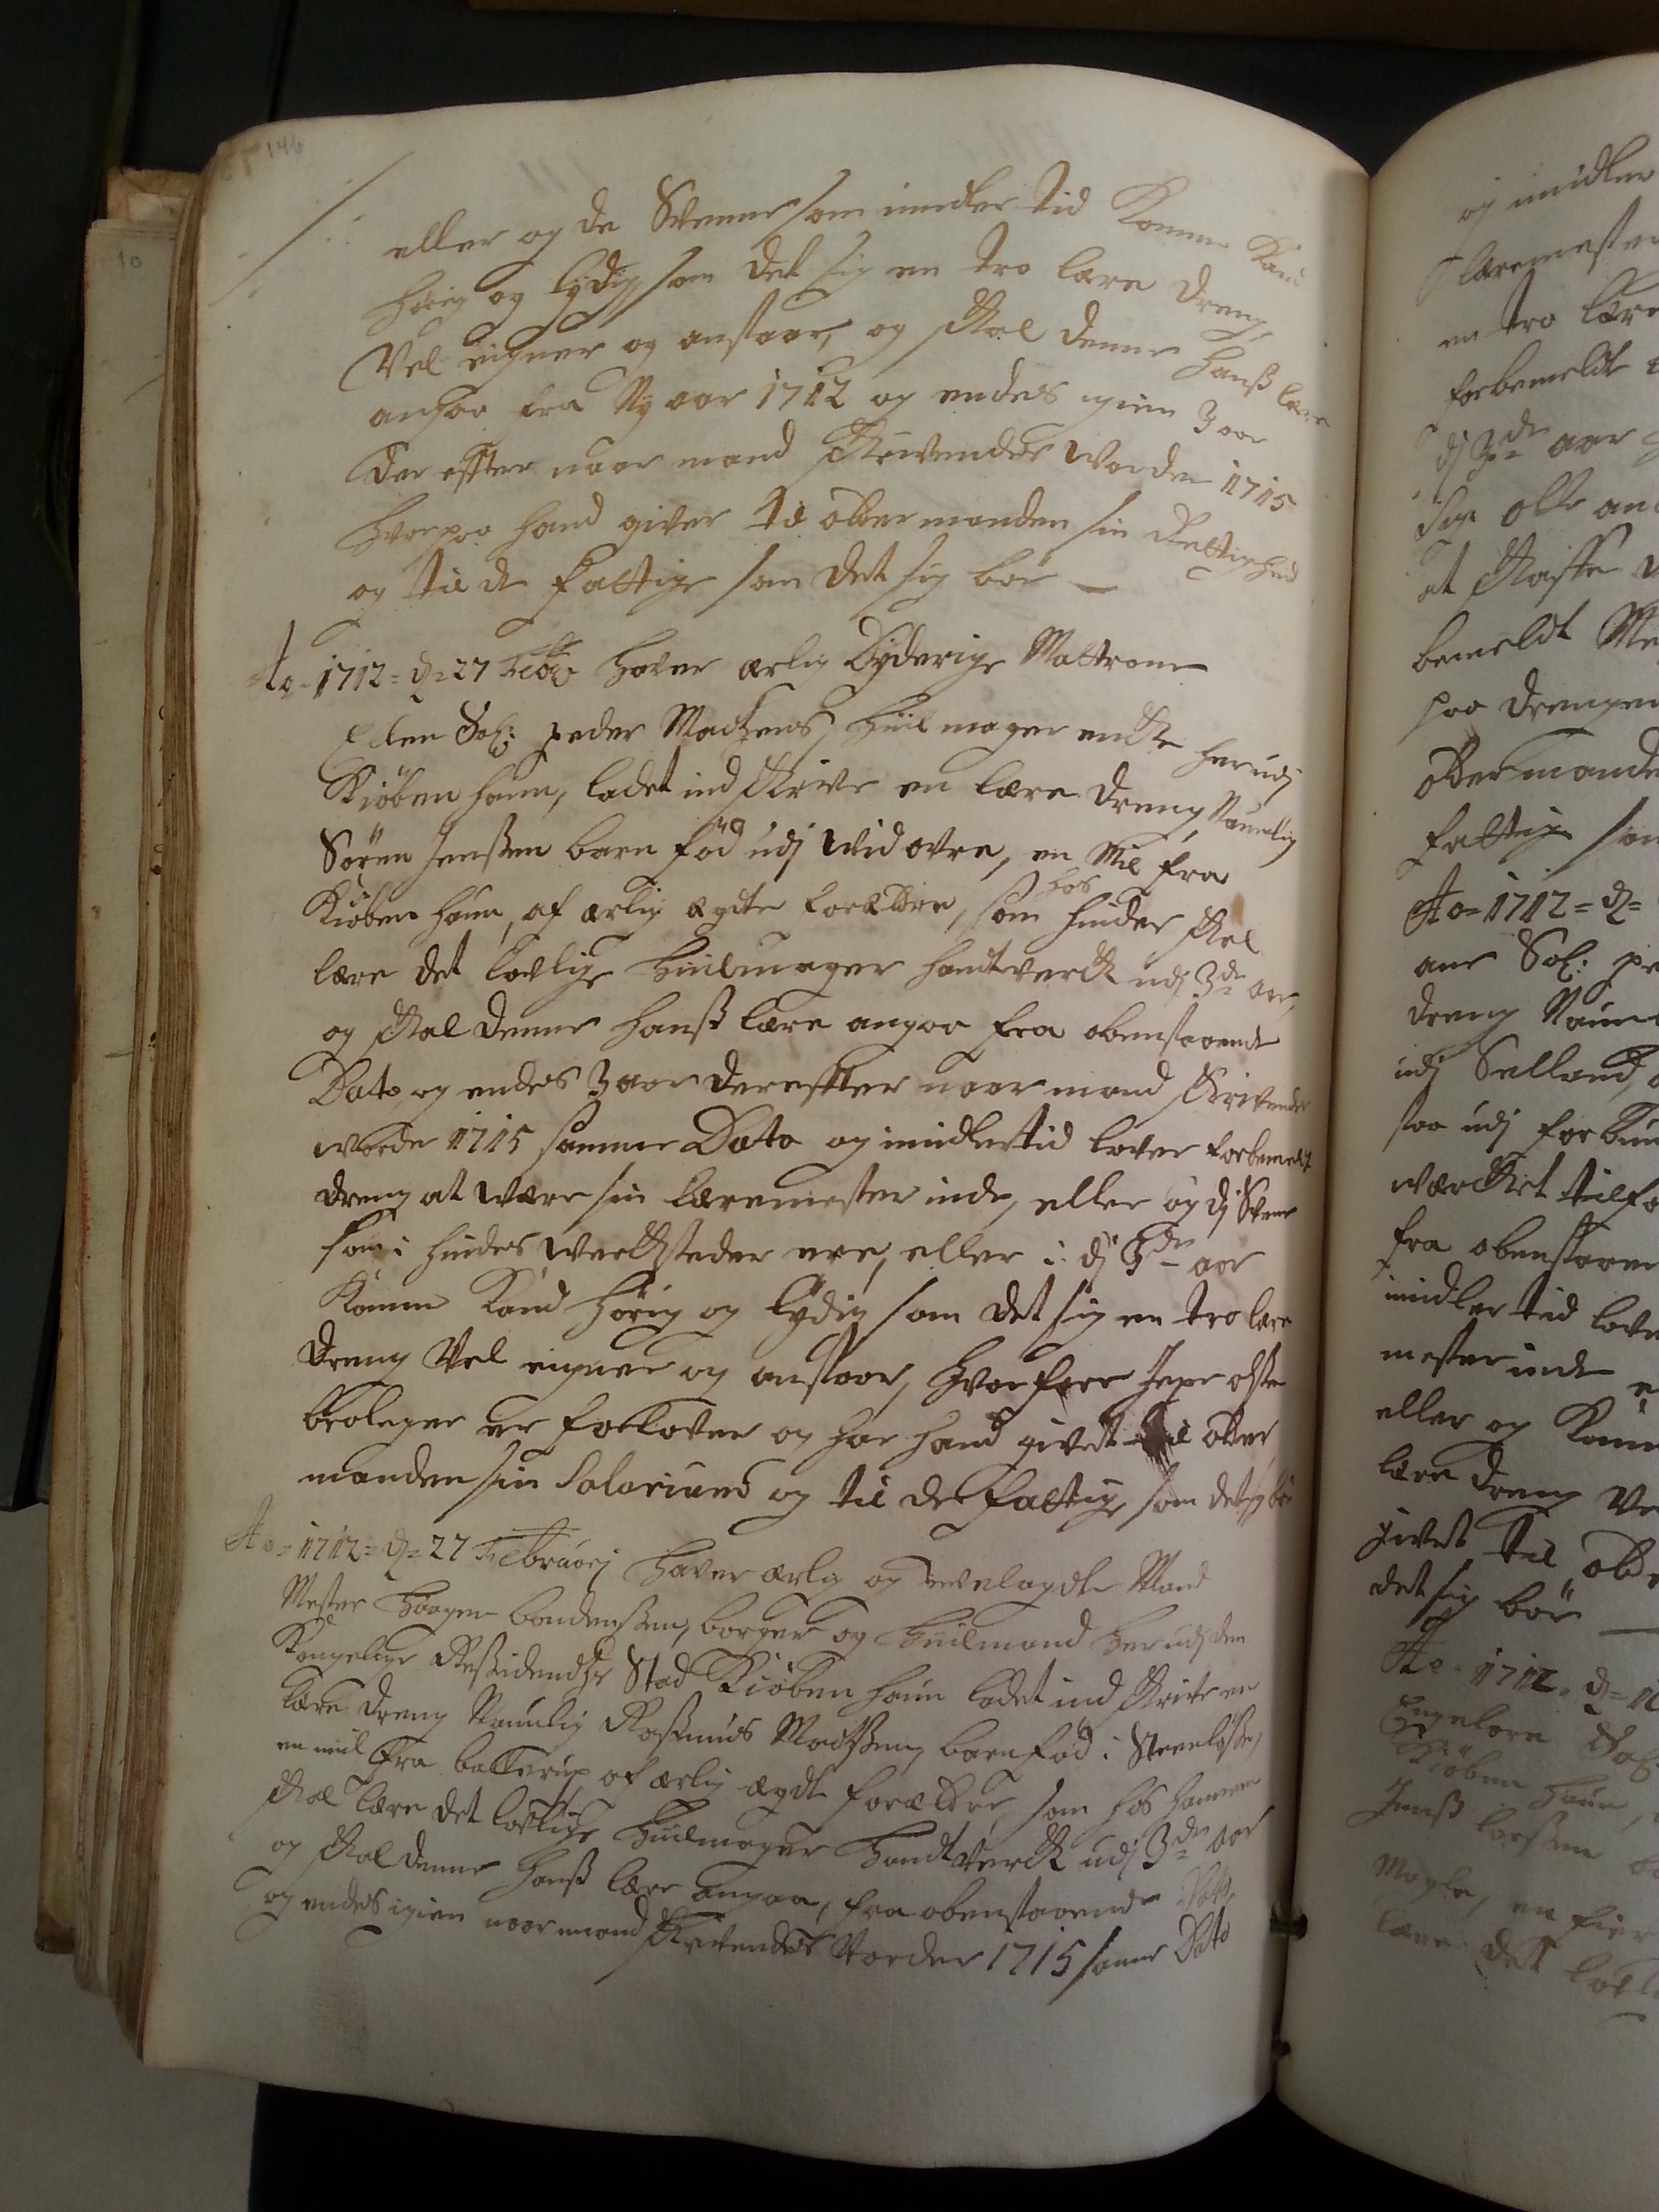 146
10
eller og de Svenne som imidler tid Komme Kand
hørig og lydig, som det sig en tro lære dreng,
Vel eigner og anstaar, og skal denne hanß lære
angaa fra Ny aar 1712 og endes igien 3 aar
der effter naar mand skrivendes worder 1715
hvorpaa hand giver til olderman den sin Rettighed
og til de fattige som det sig bør —
Ao = 1712 = d = 27 Febr haver ærlig Dyderige Mattrone
Ellen Sal: peder Madsens, hiulmager encke her udj
Kiøbenhaun, ladet indskrive en lære dreng Naunlig
Søren Jenßen barn fød udj Widovre, en Mil fra
Kiøbenhaun, af ærlig egte forældre, som hos hinder skal
lære det lovlige hiulmager handtverck udj 3de aar,
og skal denne hanß lære angaa fra obenstaaende
Dato, og endes 3 aar dereffter naar mand skrivendes
worde 1715 samme Dato og imidlertid lover forbemelt
dreng at være sin læremester inde, eller og dj Svene
som i hindes werchsteder ere, eller i dj 3de aar
Komme Kand hørig og lydig som det sig en tro lære
dreng Vel eigner og anstaar, hvorfore Jepe olsen
brolegger er forlover og har hand givet til older
manden sin Salarium og til de fattige, som det sig bør
Ao = 1712 = d = 27 Februarj haver ærlig og velagdte Mand
Mester haagen bondenßen, borger og hiulmand her udj den
Kongelige Reßidendtz Stad Kiøbenhaun ladet indskrive en
lære dreng Naunlig Raßmus Madtßen, barn fød i Steenløße,
en mil fra ballerup, af ærlig ægdte forældre, som hos hannem
skal lære det lovlige hiulmager handtverck udj 3de aar
og skal denne hanß lære angaa, fra obenstaaende Dato,
og endes igien naar mand skrivendes Vorder 1715 samme Dato
og imidler
læremester
en tro lære
forbemeldte
dj 3de aar
at skaffe
bemeldt Me
paa drengen
oldermande
fattige som
Ao = 1712 = d =
ane Sal: pe
dreng Naun
udj Selland,
staa udj forbun
værcket tilfo
fra obenstaaen
imidler tid love
mester inde
eller og Kom
lære dreng Ve
givet til olde
det sig bør —
Ao = 1712 = d = 1
Engelbre Sal
Kiøbenhaun,
Jenß larßen
Magle, en fier
lære det lovli